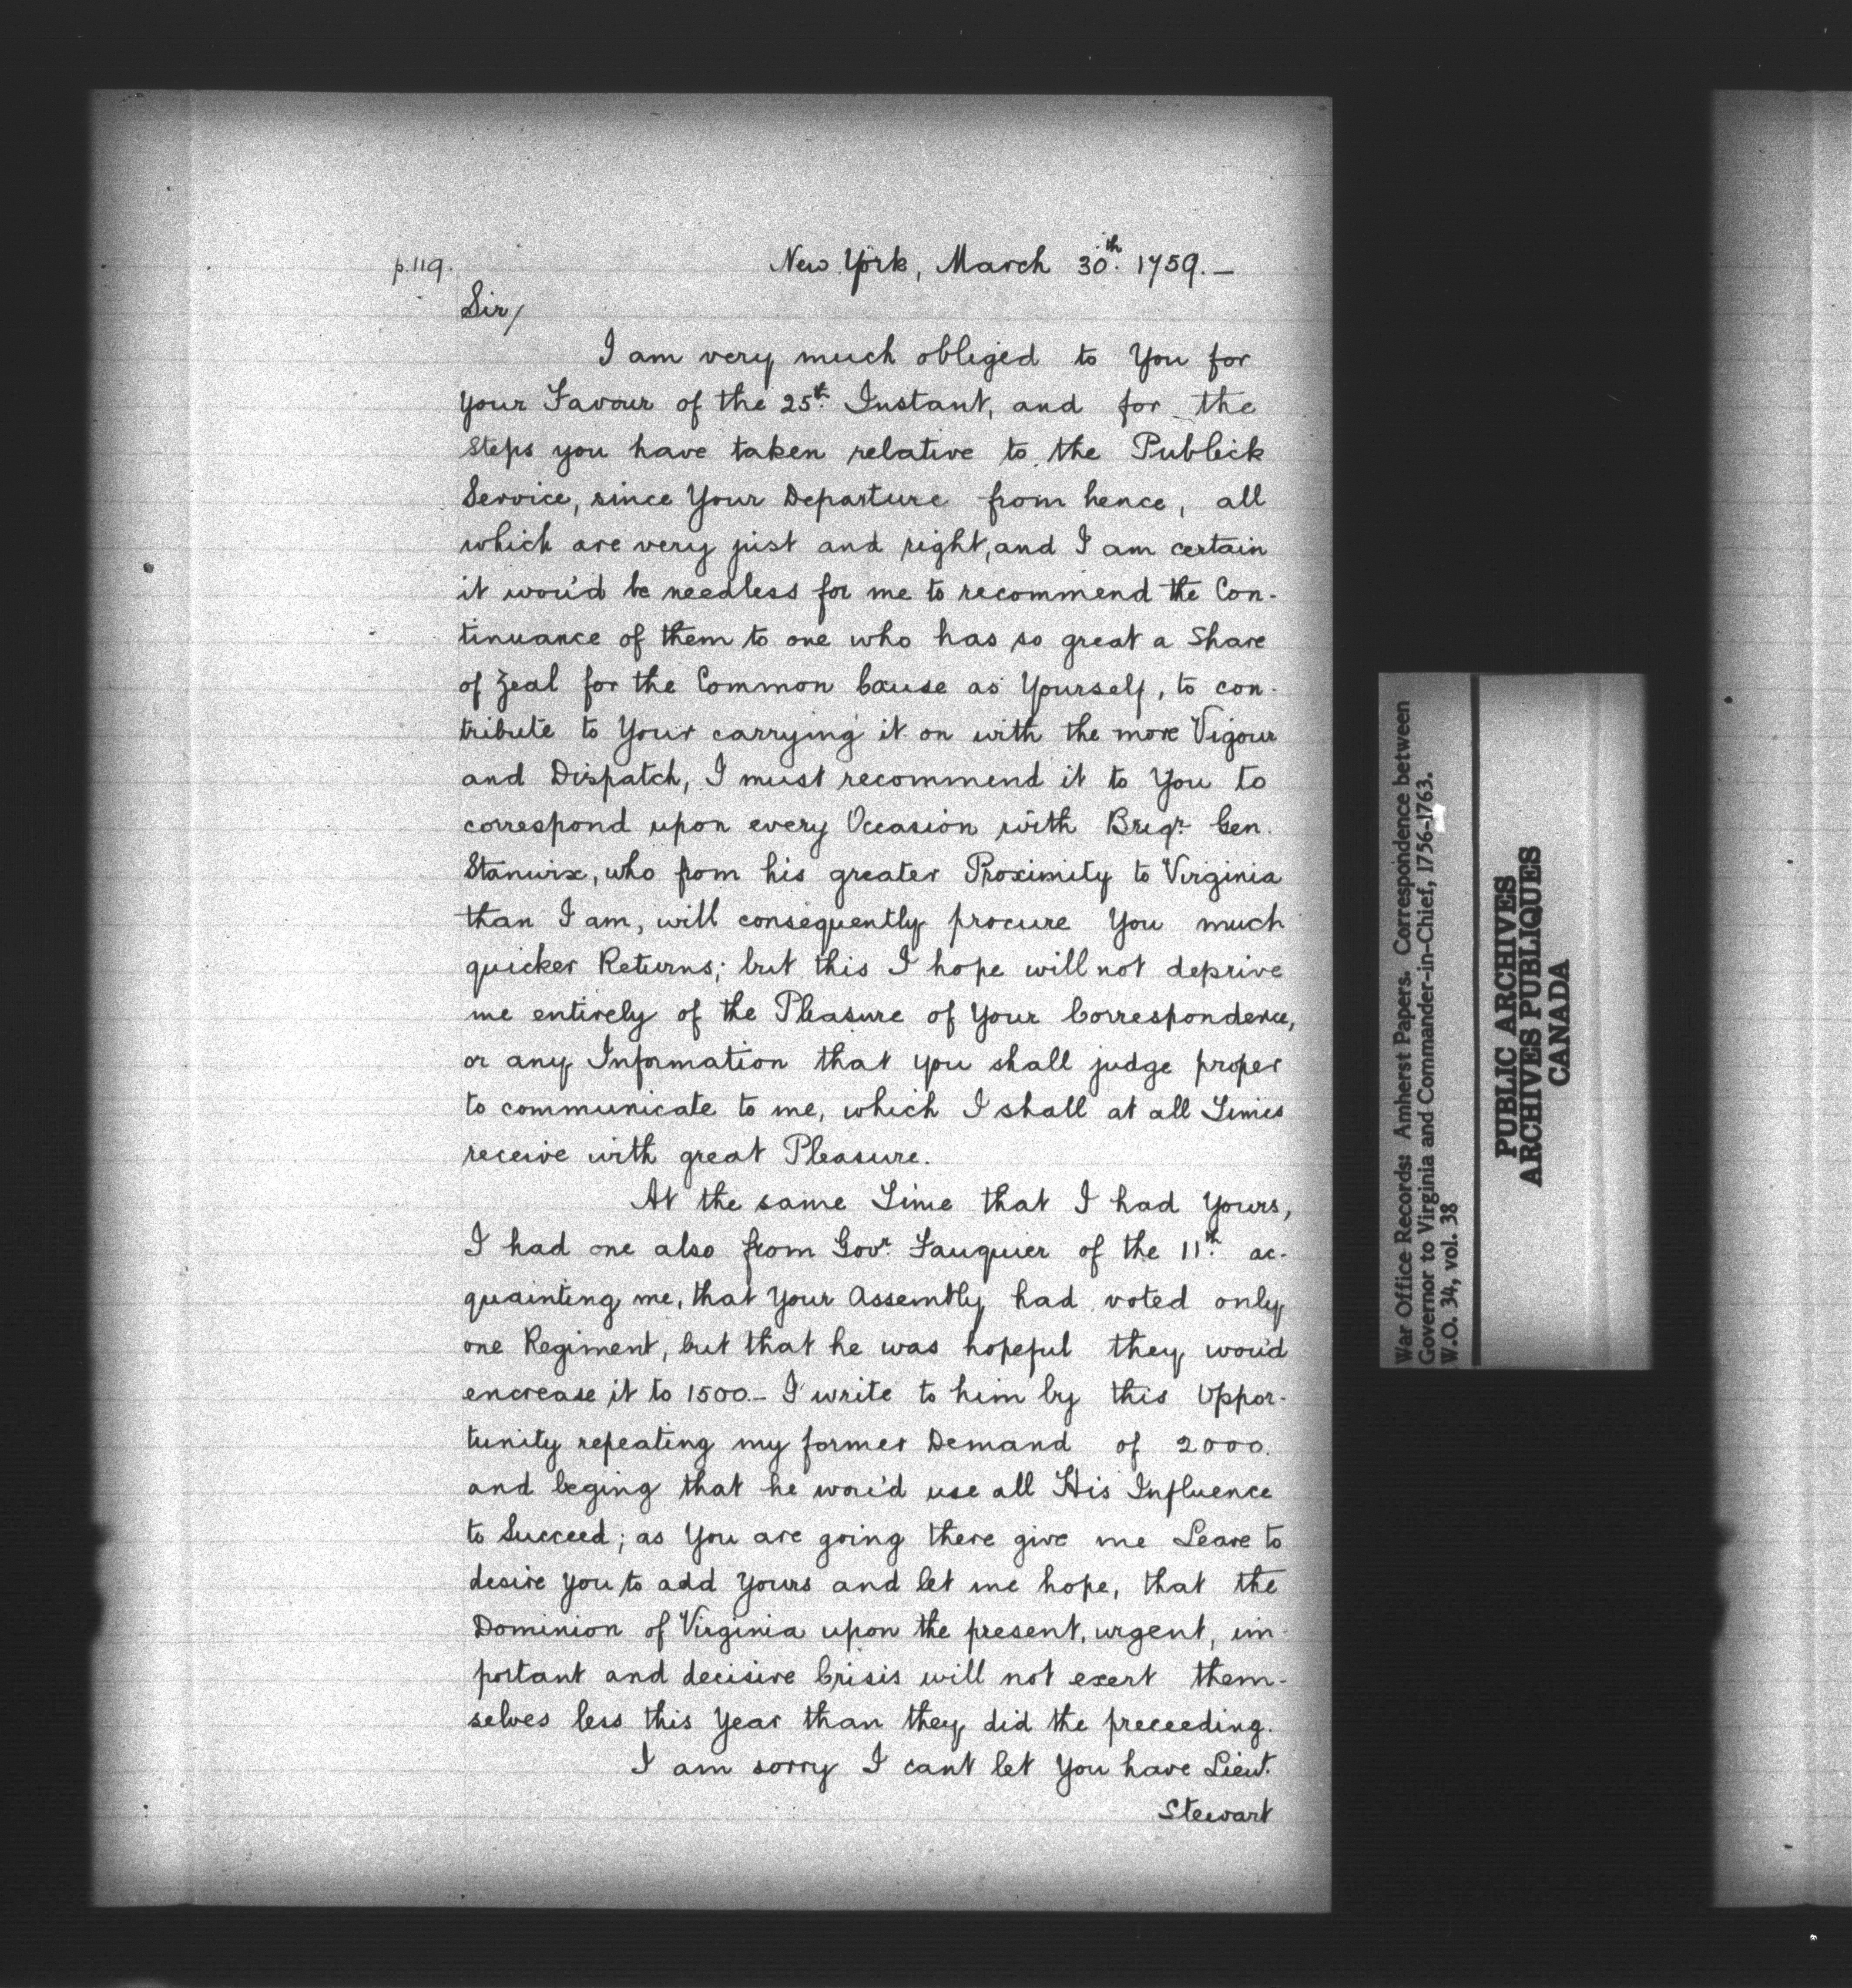 p.119.
New York, March 30th. 1759.—
Sir/
I am very much obliged to You for
your Favour of the 25th. Instant, and for the
Steps you have taken relative to the Publick
Service, since Your Departure from hence, all
which are very just and right, and I am certain
it wou'd be needless for me to recommend the Con-
tinuance of them to one who has so great a Share
of Zeal for the Common Cause as Yourself, to con-
tribute to Your carrying it on with the more Vigour
and Dispatch, I must recommend it to You to
correspond upon every Occasion with Brigr. Gen.
Stanwix, who from his greater Proximity to Virginia
than I am, will consequently procure You much
quicker Returns; but this I hope will not deprive
me entirely of the Pleasure of Your Correspondence,
or any Information that you shall judge proper
to communicate to me, which I shall at all Times
receive with great Pleasure.
At the same Time that I had Yours,
I had one also from Govr. Fauquier of the 11th. ac-
quainting me, that Your Assembly had voted only
one Regiment, but that he was hopeful they wou'd
encrease it to 1500.– I write to him by this Oppor-
tunity repeating my former Demand of 2000.
and beging that he wou'd use all His Influence
to Succeed; as You are going there give me Leave to
desire You to add Yours and let me hope, that the
Dominion of Virginia upon the present, urgent, im-
portant and decisive Crisis will not exert them-
selves less this Year than they did the preceeding.
I am sorry I cant let You have Lieut.
Stewart
War Office Records: Amherst Papers. Correspondence between
Governor to Virginia and Commander-in-Chief, 1756-1763.
W.O. 34, vol. 38
PUBLIC ARCHIVES
ARCHIVES PUBLIQUES
CANADA